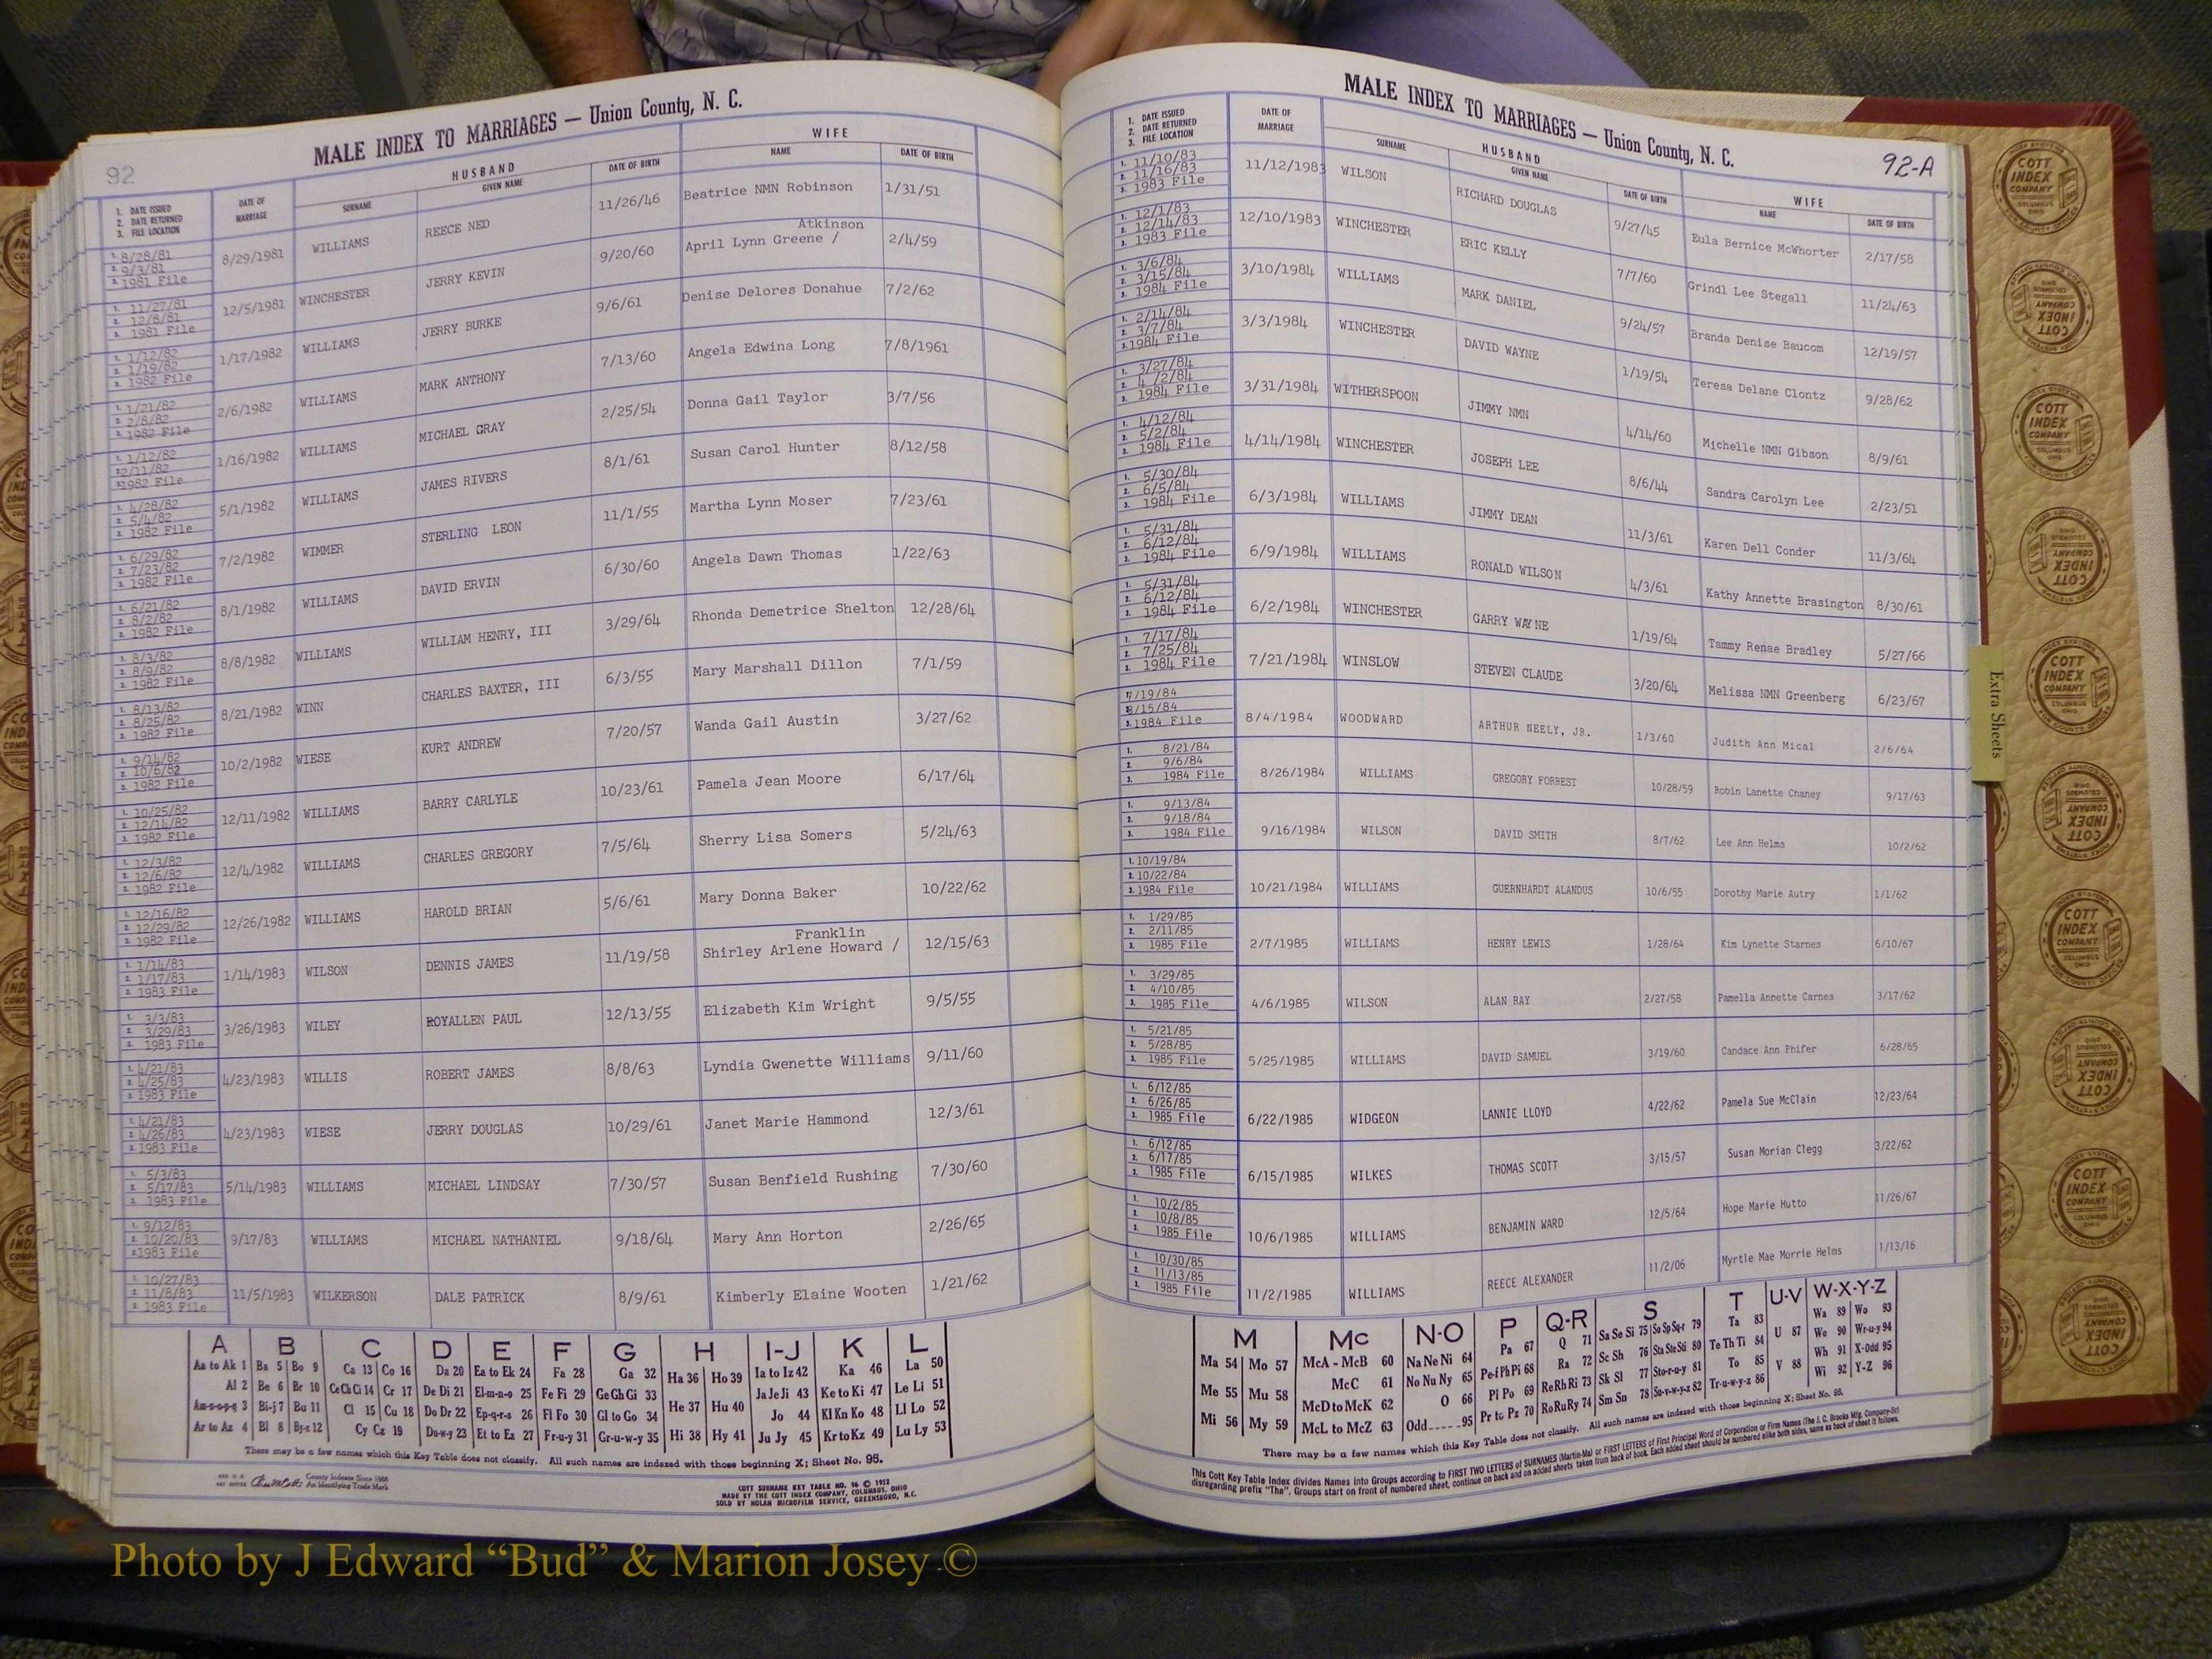 92
MALE INDEX TO MARRIAGES — Union County, N. C.
HUSBAND WIFE
1. DATE ISSUED
2. DATE RETURNED
3. FILE LOCATION
DATE OF MARRIAGE SURNAME GIVEN NAME DATE OF BIRTH NAME DATE OF BIRTH
1. 8/28/81
2. 9/3/81
3. 1981 File
8/29/1981 WILLIAMS REECE NED 11/26/46 Beatrice NMN Robinson 1/31/51
1. 11/27/81
2. 12/8/81
3. 1981 File
Atkinson
12/5/1981 WINCHESTER JERRY KEVIN 9/20/60 April Lynn Greene / 2/4/59
1. 1/12/82
2. 1/19/82
3. 1982 File
1/17/1982 WILLIAMS JERRY BURKE 9/6/61 Denise Delores Donahue 7/2/62
1. 1/21/82
2. 2/8/82
3. 1982 File
2/6/1982 WILLIAMS MARK ANTHONY 7/13/60 Angela Edwina Long 7/8/1961
1. 1/12/82
2. 2/11/82
3. 1982 File
1/16/1982 WILLIAMS MICHAEL GRAY 2/25/54 Donna Gail Taylor 3/7/56
1. 4/28/82
2. 5/4/82
3. 1982 File
5/1/1982 WILLIAMS JAMES RIVERS 8/1/61 Susan Carol Hunter 8/12/58
1. 6/29/82
2. 7/23/82
3. 1982 File
7/2/1982 WIMMER STERLING LEON 11/1/55 Martha Lynn Moser 7/23/61
1. 6/21/82
2. 8/2/82
3. 1982 File
8/1/1982 WILLIAMS DAVID ERVIN 6/30/60 Angela Dawn Thomas 1/22/63
1. 8/3/82
2. 8/9/82
3. 1982 File
8/8/1982 WILLIAMS WILLIAM HENRY, III 3/29/64 Rhonda Demetrice Shelton 12/28/64
1. 8/13/82
2. 8/25/82
3. 1982 File
8/21/1982 WINN CHARLES BAXTER, III 6/3/55 Mary Marshall Dillon 7/1/59
1. 9/14/82
2. 10/6/82
3. 1982 File
10/2/1982 WIESE KURT ANDREW 7/20/57 Wanda Gail Austin 3/27/62
1. 10/25/82
2. 12/14/82
3. 1982 File
12/11/1982 WILLIAMS BARRY CARLYLE 10/23/61 Pamela Jean Moore 6/17/64
1. 12/3/82
2. 12/6/82
3. 1982 File
12/4/1982 WILLIAMS CHARLES GREGORY 7/5/64 Sherry Lisa Somers 5/24/63
1. 12/16/82
2. 12/29/82
3. 1982 File
12/26/1982 WILLIAMS HAROLD BRIAN 5/6/61 Mary Donna Baker 10/22/62
1. 1/14/83
2. 1/17/83
3. 1983 File
Franklin
1/14/1983 WILSON DENNIS JAMES 11/19/58 Shirley Arlene Howard / 12/15/63
1. 3/3/83
2. 3/29/83
3. 1983 File
3/26/1983 WILEY ROYALLEN PAUL 12/13/55 Elizabeth Kim Wright 9/5/55
1. 4/21/83
2. 4/25/83
3. 1983 File
4/23/1983 WILLIS ROBERT JAMES 8/8/63 Lyndia Gwenette Williams 9/11/60
1. 4/21/83
2. 4/26/83
3. 1983 File
4/23/1983 WIESE JERRY DOUGLAS 10/29/61 Janet Marie Hammond 12/3/61
1. 5/3/83
2. 5/17/83
3. 1983 File
5/14/1983 WILLIAMS MICHAEL LINDSAY 7/30/57 Susan Benfield Rushing 7/30/60
1. 9/12/83
2. 10/20/83
3. 1983 File
9/17/83 WILLIAMS MICHAEL NATHANIEL 9/18/64 Mary Ann Horton 2/26/65
1. 10/27/83
2. 11/8/83
3. 1983 File
11/5/1983 WILKERSON DALE PATRICK 8/9/61 Kimberly Elaine Wooten 1/21/62
A B C D E F G H I-J K L
Aa to Ak 1 Ba 5 Bo 9 Ca 13 Co 16 Da 20 Ea to Ek 24 Fa 28 Ga 32 Ha 36 Ho 39 Ia to Iz 42 Ka 46 La 50
Al 2 Be 6 Br 10 Ce Ch Ci 14 Cr 17 De Di 21 El-m-n-o 25 Fe Fi 29 Ge Gh Gi 33 He 37 Hu 40 Ja Je Ji 43 Ke to Ki 47 Le Li 51
Am-n-o-p-q 3 Bi-j 7 Bu 11 Cl 15 Cu 18 Do Dr 22 Ep-q-r-s 26 Fl Fo 30 Gl to Go 34 Jo 44 Kl Kn Ko 48 Ll Lo 52
Ar to Az 4 Bl 8 By-z 12 Cy Cz 19 Du-w-y 23 Et to Ez 27 Fr-u-y 31 Gr-u-w-y 35 Hi 38 Hy 41 Ju Jy 45 Kr to Kz 49 Lu Ly 53
There may be a few names which this Key Table does not classify. All such names are indexed with those beginning X; Sheet No. 95.
County Indexes Since 1888
An Identifying Trade Mark
COTT SURNAME KEY TABLE NO. 96 © 1952
MADE BY THE COTT INDEX COMPANY, COLUMBUS, OHIO
SOLD BY NOLAN MICROFILM SERVICE, GREENSBORO, N.C.
MALE INDEX TO MARRIAGES — Union County, N. C.
92-A
HUSBAND WIFE
1. DATE ISSUED
2. DATE RETURNED
3. FILE LOCATION
DATE OF MARRIAGE SURNAME GIVEN NAME DATE OF BIRTH NAME DATE OF BIRTH
1. 11/10/83
2. 11/16/83
3. 1983 File
11/12/1983 WILSON RICHARD DOUGLAS 9/27/45 Eula Bernice McWhorter 2/17/58
1. 12/1/83
2. 12/14/83
3. 1983 File
12/10/1983 WINCHESTER ERIC KELLY 7/7/60 Grindl Lee Stegall 11/24/63
1. 3/6/84
2. 3/15/84
3. 1984 File
3/10/1984 WILLIAMS MARK DANIEL 9/24/57 Branda Denise Baucom 12/19/57
1. 2/14/84
2. 3/7/84
3. 1984 File
3/3/1984 WINCHESTER DAVID WAYNE 1/19/54 Teresa Delane Clontz 9/28/62
1. 3/27/84
2. 4/2/84
3. 1984 File
3/31/1984 WITHERSPOON JIMMY NMN 4/14/60 Michelle NMN Gibson 8/9/61
1. 4/12/84
2. 5/2/84
3. 1984 File
4/14/1984 WINCHESTER JOSEPH LEE 8/6/44 Sandra Carolyn Lee 2/23/51
1. 5/30/84
2. 6/5/84
3. 1984 File
6/3/1984 WILLIAMS JIMMY DEAN 11/3/61 Karen Dell Conder 11/3/64
1. 5/31/84
2. 6/12/84
3. 1984 File
6/9/1984 WILLIAMS RONALD WILSON 4/3/61 Kathy Annette Brasington 8/30/61
1. 5/31/84
2. 6/12/84
3. 1984 File
6/2/1984 WINCHESTER GARRY WAYNE 1/19/64 Tammy Renae Bradley 5/27/66
1. 7/17/84
2. 7/25/84
3. 1984 File
7/21/1984 WINSLOW STEVEN CLAUDE 3/20/64 Melissa NMN Greenberg 6/23/67
7/19/84
8/15/84
3. 1984 File
8/4/1984 WOODWARD ARTHUR NEELY, JR. 1/3/60 Judith Ann Mical 2/6/64
1. 8/21/84
2. 9/6/84
3. 1984 File
8/26/1984 WILLIAMS GREGORY FORREST 10/28/59 Robin Lanette Chaney 9/17/63
1. 9/13/84
2. 9/18/84
3. 1984 File
9/16/1984 WILSON DAVID SMITH 8/7/62 Lee Ann Helms 10/2/62
1. 10/19/84
2. 10/22/84
3. 1984 File
10/21/1984 WILLIAMS GUERNHARDT ALANDUS 10/6/55 Dorothy Marie Autry 1/1/62
1. 1/29/85
2. 2/11/85
3. 1985 File
2/7/1985 WILLIAMS HENRY LEWIS 1/28/64 Kim Lynette Starnes 6/10/67
1. 3/29/85
2. 4/10/85
3. 1985 File
4/6/1985 WILSON ALAN RAY 2/27/58 Pamella Annette Carnes 3/17/62
1. 5/21/85
2. 5/28/85
3. 1985 File
5/25/1985 WILLIAMS DAVID SAMUEL 3/19/60 Candace Ann Phifer 6/28/65
1. 6/12/85
2. 6/26/85
3. 1985 File
6/22/1985 WIDGEON LANNIE LLOYD 4/22/62 Pamela Sue McClain 12/23/64
1. 6/12/85
2. 6/17/85
3. 1985 File
6/15/1985 WILKES THOMAS SCOTT 3/15/57 Susan Morian Clegg 3/22/62
1. 10/2/85
2. 10/8/85
3. 1985 File
10/6/1985 WILLIAMS BENJAMIN WARD 12/5/64 Hope Marie Hutto 11/26/67
1. 10/30/85
2. 11/13/85
3. 1985 File
11/2/1985 WILLIAMS REECE ALEXANDER 11/2/06 Myrtle Mae Morrie Helms 1/13/16
M Mc N-O P Q-R S T U-V W-X-Y-Z
Ma 54 Mo 57 McA - McB 60 Na Ne Ni 64 Pa 67 Q 71 Sa Se Si 75 So Sp Sq-r 79 Ta 83 U 87 Wa 89 Wo 93
Me 55 Mu 58 McC 61 No Nu Ny 65 Pe-f Ph Pi 68 Ra 72 Sc Sh 76 Sta Ste Sti 80 Te Th Ti 84 We 90 Wr-u-y 94
McD to McK 62 O 66 Pl Po 69 Re Rh Ri 73 Sk Sl 77 Sto-r-u-y 81 To 85 V 88 Wh 91 X-Odd 95
Mi 56 My 59 McL to McZ 63 Odd 95 Pr to Pz 70 Ro Ru Ry 74 Sm Sn 78 Su-v-w-y-z 82 Tr-u-w-y-z 86 Wi 92 Y-Z 96
There may be a few names which this Key Table does not classify. All such names are indexed with those beginning X; Sheet No. 95.
This Cott Key Table Index divides Names into Groups according to FIRST TWO LETTERS of SURNAMES (Martin-Ma) or FIRST LETTERS of First Principal Word of Corporation or Firm Names (The J. C. Brooks Mfg. Company-Br)
disregarding prefix "The". Groups start on front of numbered sheet, continue on back and on added sheets taken from back of book. Each added sheet should be numbered alike both sides, same as back of sheet it follows.
Extra Sheets
COTT INDEX COMPANY COLUMBUS OHIO
Photo by J Edward “Bud” & Marion Josey ©